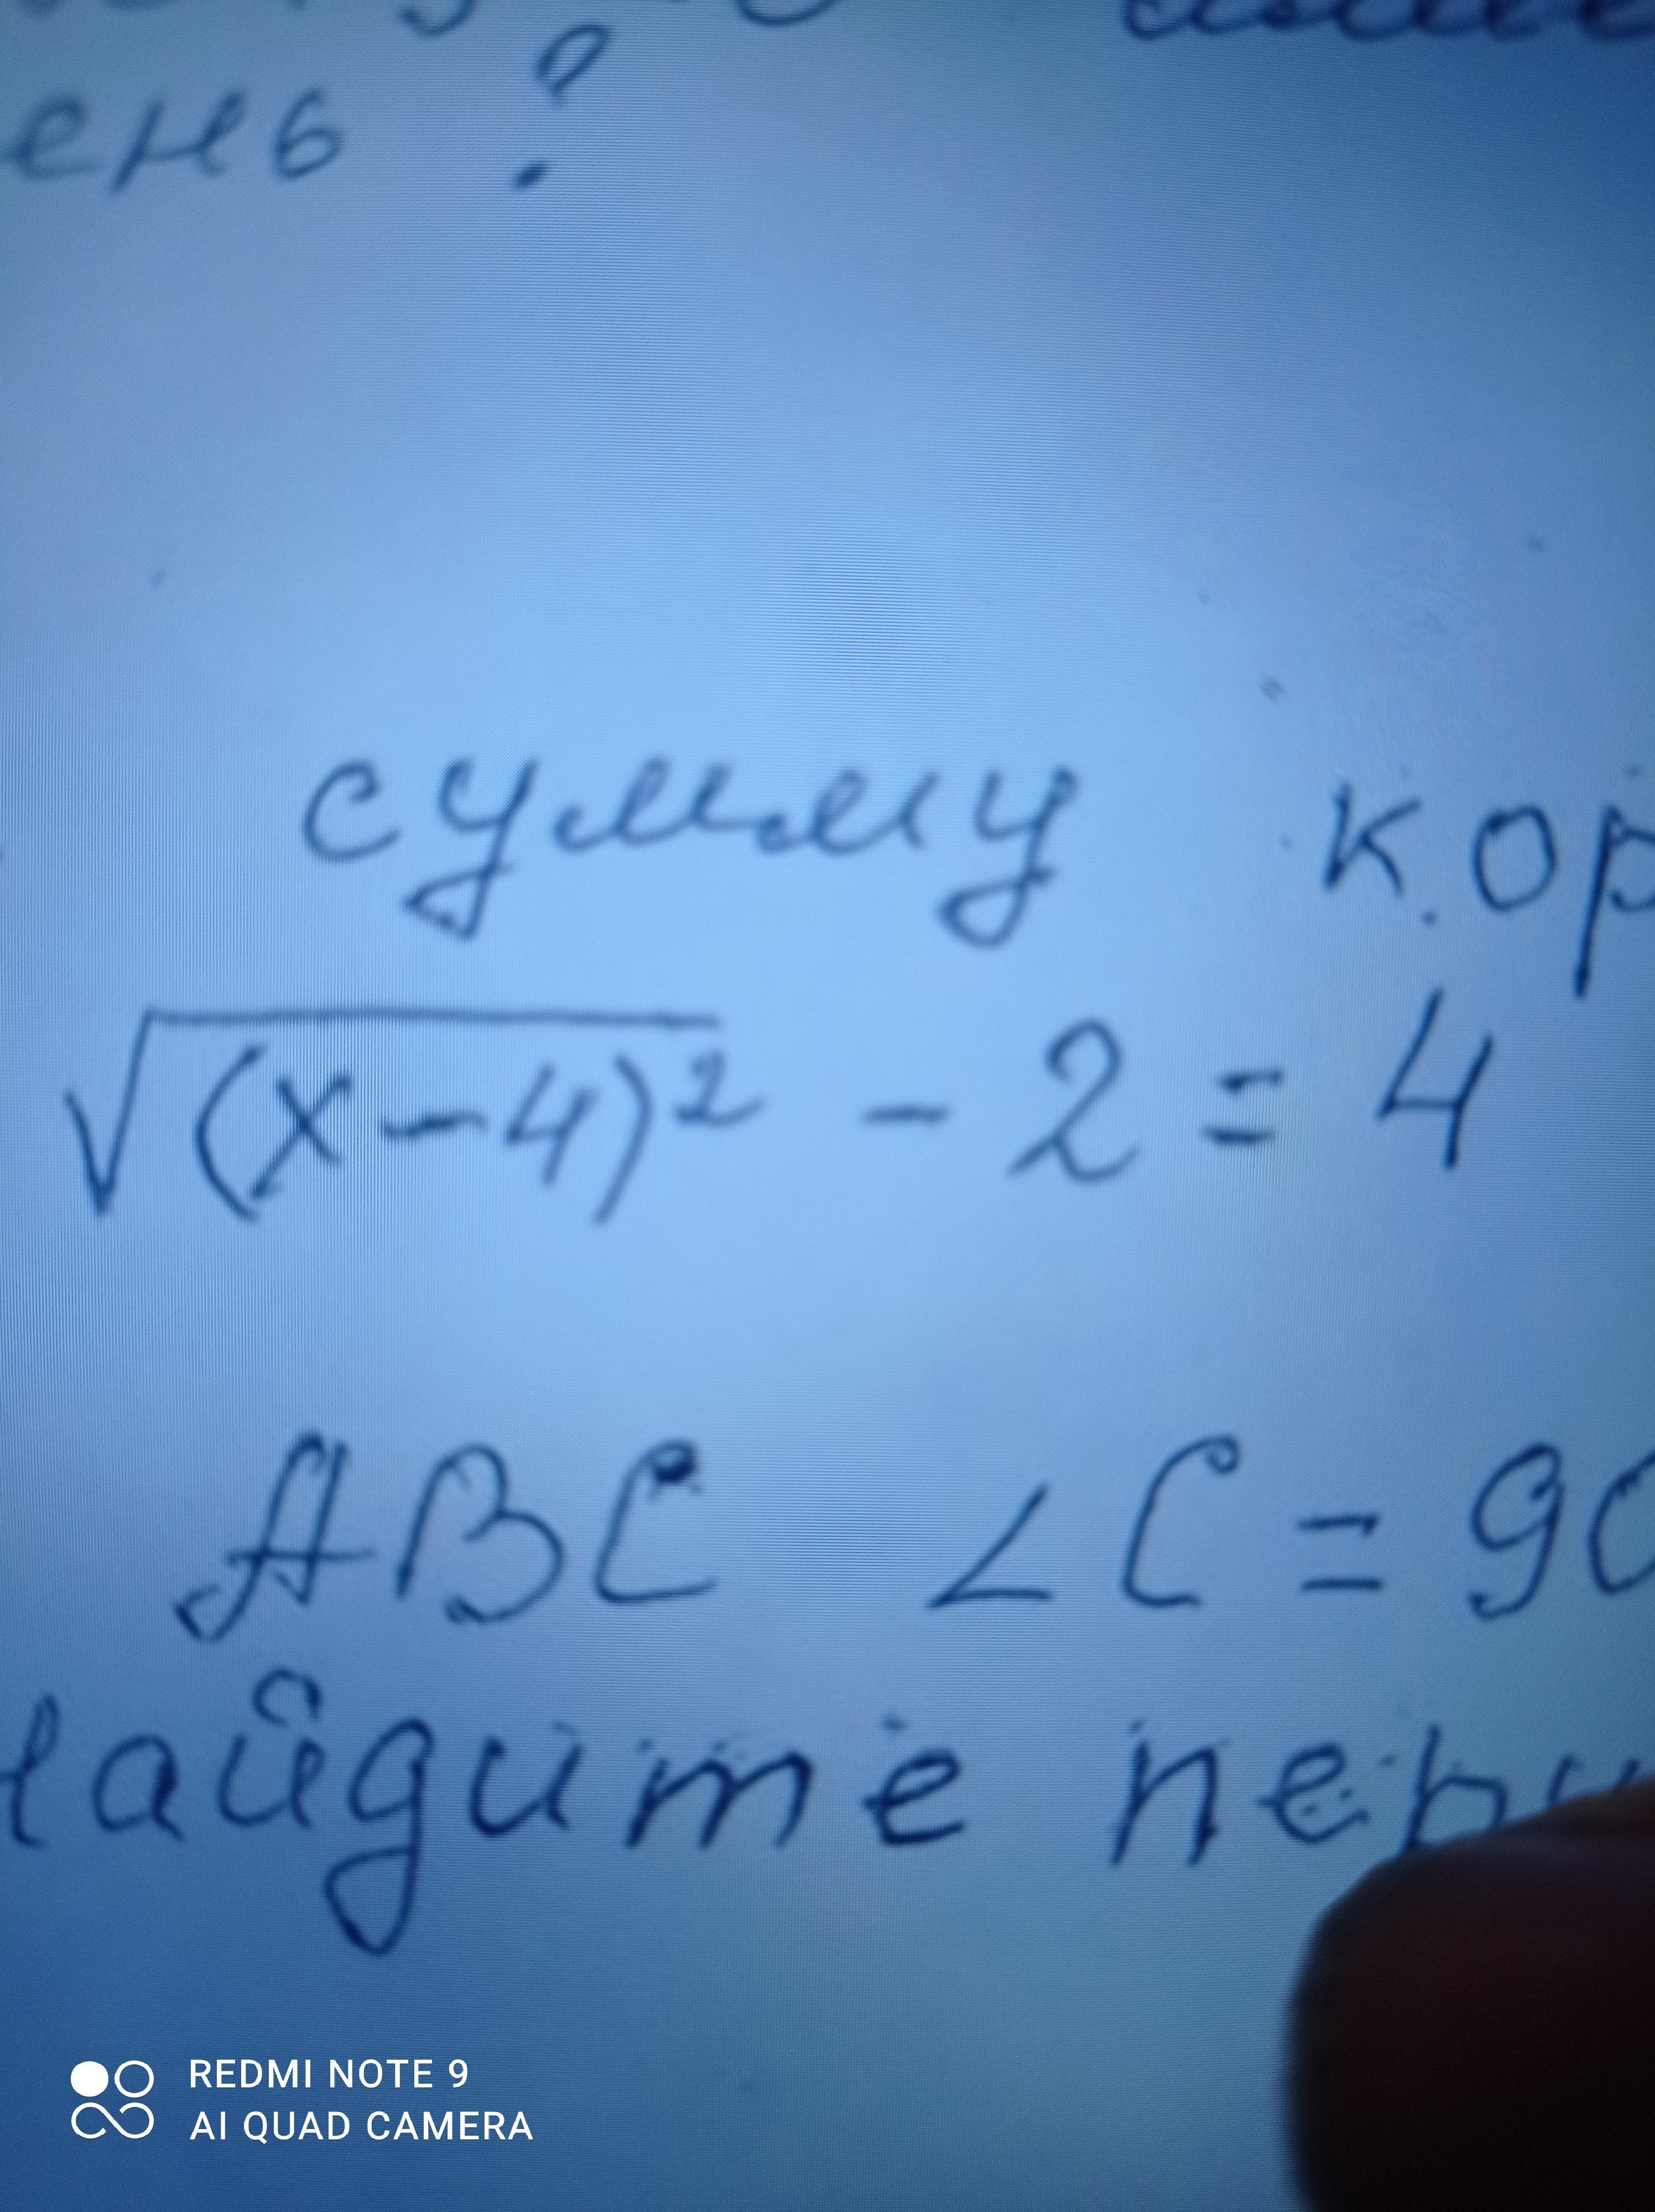 ень ?
сумму кор
√(x-4)² - 2 = 4
ABC ∠C = 90
Найдите пери
REDMI NOTE 9
AI QUAD CAMERA